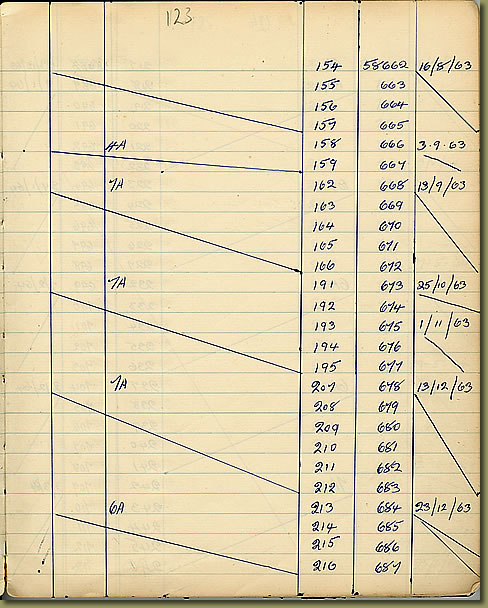 123
154 58662 16/8/63
155 663
156 664
157 665
4A 158 666 3.9.63
159 667
7A 162 668 13/9/63
163 669
164 670
165 671
166 672
7A 191 673 25/10/63
192 674
193 675 1/11/63
194 676
195 677
7A 207 678 13/12/63
208 679
209 680
210 681
211 682
212 683
6A 213 684 23/12/63
214 685
215 686
216 687